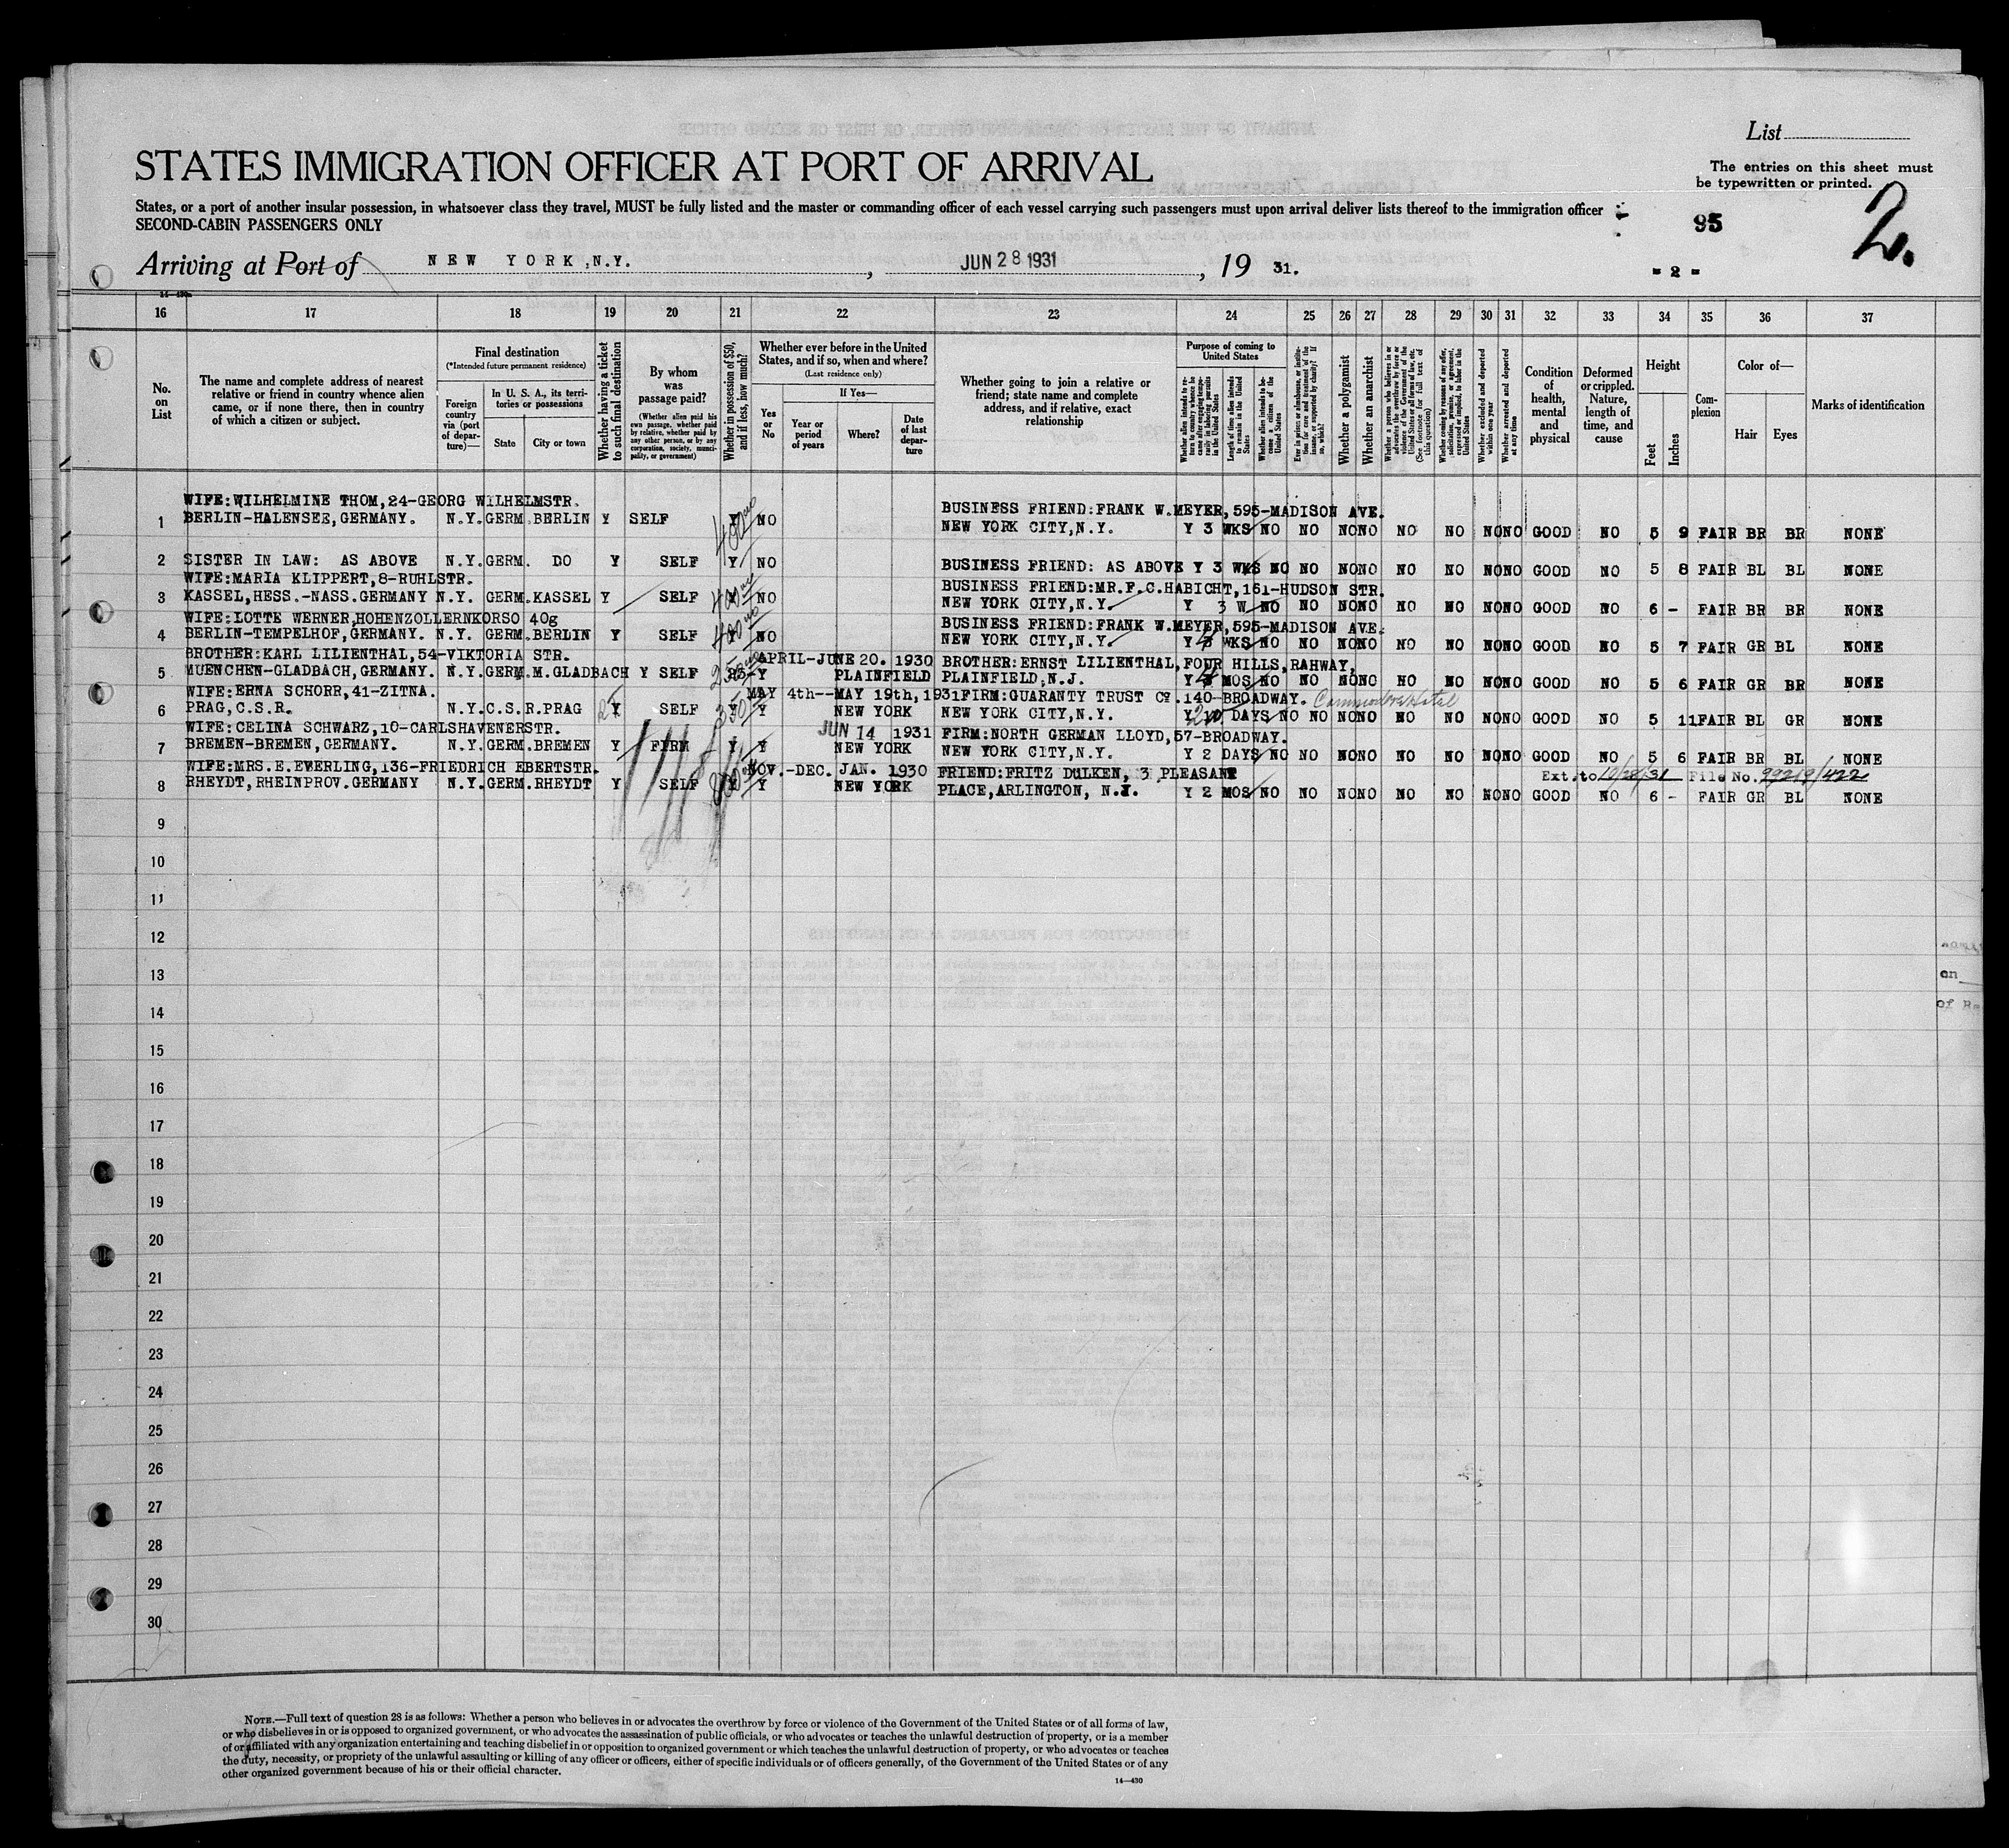 List
STATES IMMIGRATION OFFICER AT PORT OF ARRIVAL
The entries on this sheet must
be typewritten or printed.
States, or a port of another insular possession, in whatsoever class they travel, MUST be fully listed and the master or commanding officer of each vessel carrying such passengers must upon arrival deliver lists thereof to the immigration officer
SECOND-CABIN PASSENGERS ONLY
95
2.
Arriving at Port of NEW YORK, N.Y. , JUN 28 1931 , 19 31.
- 2 -
16 17 18 19 20 21 22 23 24 25 26 27 28 29 30 31 32 33 34 35 36 37
No. on List
The name and complete address of nearest
relative or friend in country whence alien
came, or if none there, then in country
of which a citizen or subject.
Final destination
(*Intended future permanent residence)
Foreign country via (port of departure)—
In U. S. A., its territories or possessions
State
City or town
Whether having a ticket to such final destination
By whom was passage paid?
(Whether alien paid his own passage, whether paid by relative, whether paid by any other person, or by any corporation, society, municipality, or government)
Whether in possession of $50, and if less, how much?
Whether ever before in the United
States, and if so, when and where?
(Last residence only)
Yes or No
If Yes—
Year or period of years
Where?
Date of last departure
Whether going to join a relative or
friend; state name and complete
address, and if relative, exact
relationship
Purpose of coming to United States
Whether alien intends to return to country whence he came after engaging temporarily in laboring pursuits in the United States
Length of time alien intends to remain in the United States
Whether alien intends to become a citizen of the United States
Ever in prison or almshouse, or institution for care and treatment of the insane, or supported by charity? If so, which?
Whether a polygamist
Whether an anarchist
Whether a person who believes in or advocates the overthrow by force or violence of the Government of the United States or all forms of law, etc. (See footnote for full text of this question)
Whether coming by reason of any offer, solicitation, promise, or agreement, expressed or implied, to labor in the United States
Whether excluded and deported within one year
Whether arrested and deported at any time
Condition of health, mental and physical
Deformed or crippled. Nature, length of time, and cause
Height
Feet
Inches
Complexion
Color of—
Hair
Eyes
Marks of identification
WIFE:WILHELMINE THOM,24-GEORG WILHELMSTR.
BUSINESS FRIEND:FRANK W.MEYER,595-MADISON AVE.
1 BERLIN-HALENSEE,GERMANY. N.Y. GERM. BERLIN Y SELF Y NO NEW YORK CITY,N.Y. Y 3 WKS NO NO NO NO NO NO NO NO GOOD NO 5 9 FAIR BR BR NONE
2 SISTER IN LAW: AS ABOVE N.Y. GERM. DO Y SELF Y NO BUSINESS FRIEND: AS ABOVE Y 3 WKS NO NO NO NO NO NO NO NO GOOD NO 5 8 FAIR BL BL NONE
WIFE:MARIA KLIPPERT,8-RUHLSTR.
BUSINESS FRIEND:MR.F.C.HABICHT,161-HUDSON STR.
3 KASSEL,HESS.-NASS.GERMANY N.Y. GERM. KASSEL Y SELF NO NEW YORK CITY,N.Y. Y 3 W NO NO NO NO NO NO NO NO GOOD NO 6 - FAIR BR BR NONE
WIFE:LOTTE WERNER,HOHENZOLLERNKORSO 40g
BUSINESS FRIEND:FRANK W.MEYER,595-MADISON AVE.
4 BERLIN-TEMPELHOF,GERMANY. N.Y. GERM. BERLIN Y SELF NO NEW YORK CITY,N.Y. Y 4 WKS NO NO NO NO NO NO NO NO GOOD NO 5 7 FAIR GR BL NONE
BROTHER:KARL LILIENTHAL,54-VIKTORIA STR.
APRIL-JUNE 20. 1930 BROTHER:ERNST LILIENTHAL,FOUR HILLS,RAHWAY,
5 MUENCHEN-GLADBACH,GERMANY. N.Y. GERM. M.GLADBACH Y SELF Y PLAINFIELD PLAINFIELD,N.J. Y 4 MOS NO NO NO NO NO NO NO NO GOOD NO 5 6 FAIR GR BR NONE
WIFE:ERNA SCHORR,41-ZITNA.
MAY 4th--MAY 19th,1931 FIRM:GUARANTY TRUST Co.140-BROADWAY. Commodore Hotel
6 PRAG,C.S.R. N.Y. C.S.R. PRAG SELF 350 Y NEW YORK NEW YORK CITY,N.Y. Y DAYS NO NO NO NO NO NO NO NO GOOD NO 5 11 FAIR BL GR NONE
WIFE:CELINA SCHWARZ,10-CARLSHAVENERSTR.
JUN 14 1931 FIRM:NORTH GERMAN LLOYD,57-BROADWAY.
7 BREMEN-BREMEN,GERMANY. N.Y. GERM. BREMEN Y FIRM Y Y NEW YORK NEW YORK CITY,N.Y. Y 2 DAYS NO NO NO NO NO NO NO NO GOOD NO 5 6 FAIR BR BL NONE
WIFE:MRS.E.EWERLING,136-FRIEDRICH EBERTSTR.
NOV.-DEC. JAN. 1930 FRIEND:FRITZ DULKEN, 3 PLEASANT
Ext. to 10/28/31 File No. 99219/422
8 RHEYDT,RHEINPROV.GERMANY N.Y. GERM. RHEYDT Y SELF Y Y NEW YORK PLACE,ARLINGTON, N.J. Y 2 MOS NO NO NO NO NO NO NO NO GOOD NO 6 - FAIR GR BL NONE
9
10
11
12
13
14
15
16
17
18
19
20
21
22
23
24
25
26
27
28
29
30
on
NOTE.—Full text of question 28 is as follows: Whether a person who believes in or advocates the overthrow by force or violence of the Government of the United States or of all forms of law,
or who disbelieves in or is opposed to organized government, or who advocates the assassination of public officials, or who advocates or teaches the unlawful destruction of property, or is a member
of or affiliated with any organization entertaining and teaching disbelief in or opposition to organized government or which teaches the unlawful destruction of property, or who advocates or teaches
the duty, necessity, or propriety of the unlawful assaulting or killing of any officer or officers, either of specific individuals or of officers generally, of the Government of the United States or of any
other organized government because of his or their official character.
14—430